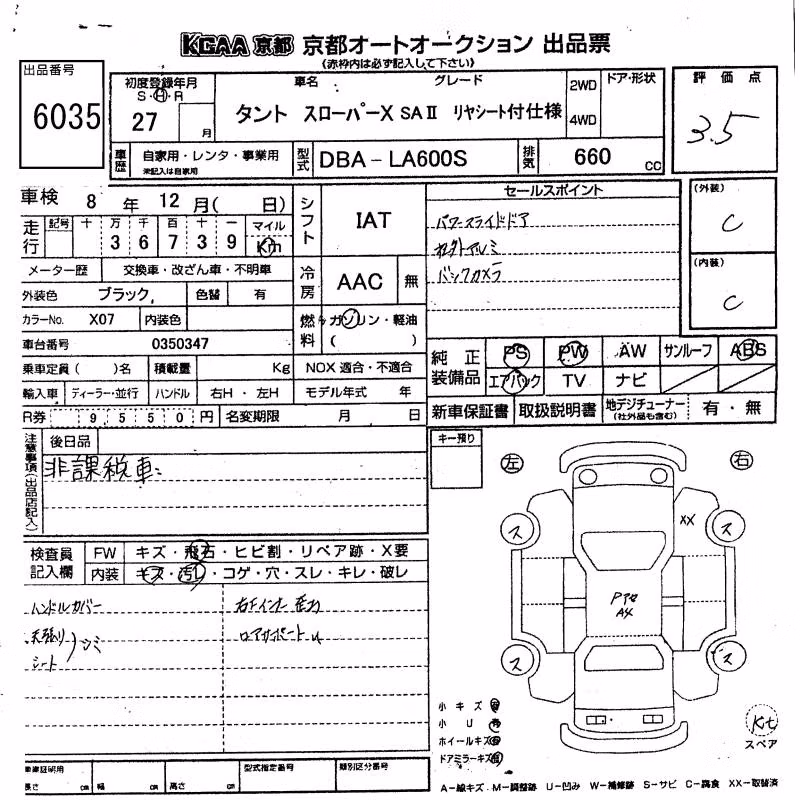 KCAA 京都 京都オートオークション 出品票
(赤枠内は必ず記入して下さい)
出品番号
6035
初度登録年月
S・H・R
27 月
車名 グレード
タント スローパーX SAⅡ リヤシート付仕様
2WD
4WD
ドア・形状
評価点
3.5
車歴
自家用・レンタ・事業用
未記入は自家用
型式
DBA-LA600S
排気
660 cc
車検 8 年 12 月( 日)
走行
記号 十 万 千 百 十 一 マイル
3 6 7 3 9 Km
シフト
IAT
セールスポイント
パワースライドドア
社外アルミ
バックカメラ
(外装)
C
(内装)
C
メーター歴 交換車・改ざん車・不明車
冷房
AAC 無
外装色 ブラック, 色替 有
カラーNo. X07 内装色
燃料
ガソリン・軽油
( )
車台番号 0350347
乗車定員( )名 積載量 Kg
NOX 適合・不適合
輸入車 ディーラー・並行 ハンドル 右H・左H モデル年式 年
R券 9550円 名変期限 月 日
純正装備品
PS PW AW サンルーフ ABS
エアバック TV ナビ
新車保証書 取扱説明書 地デジチューナー(社外品も含む) 有・無
注意事項(出品店記入)
後日品
非課税車
キー預り
左 右
検査員記入欄
FW キズ・飛石・ヒビ割・リペア跡・X要
内装 キズ・汚レ・コゲ・穴・スレ・キレ・破レ
ハンドルカバー
天張り
シート
シミ
ロアサポートU
ス
ス
XX
PアセA4
ス
ス
小キズ 有
小U 有
ホイールキズ 有
ドアミラーキズ 有
Kit
スペア
車庫証明用
長さ cm 幅 cm 高さ cm
型式指定番号
類別区分番号
A-線キズ M-調整跡 U-凹み W-補修跡 S-サビ C-腐食 XX-取替済